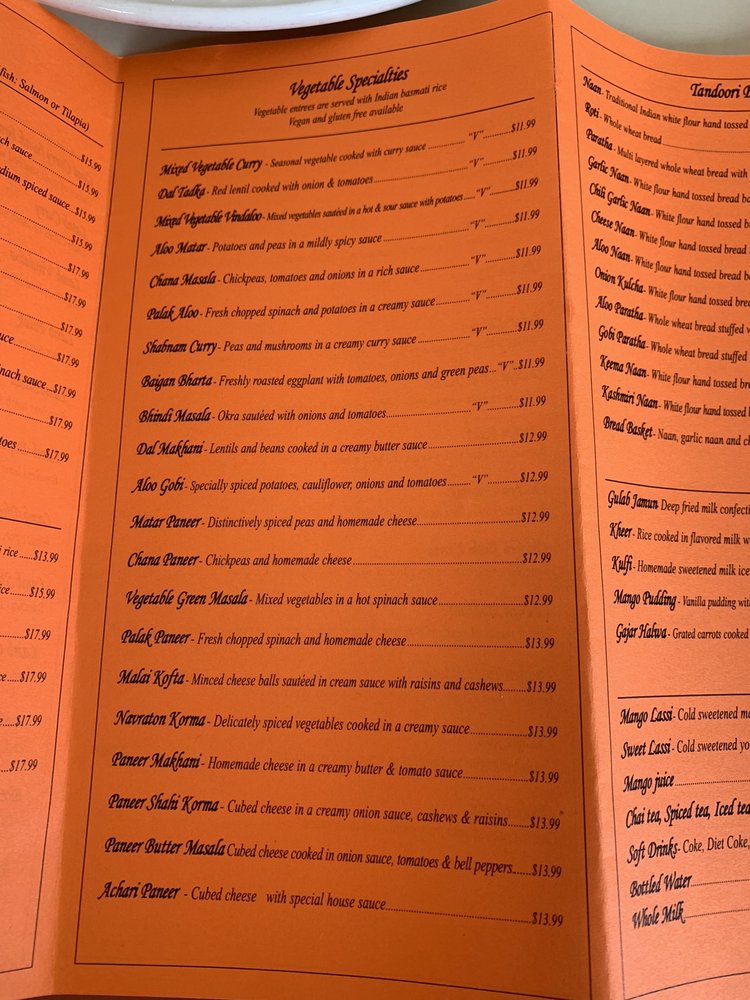 fish: Salmon or Tilapia)
$15.99
ach sauce
$15.99
edium spiced sauce...$15.99
$15.99
$17.99
$17.99
$17.99
uce
$17.99
inach sauce...$17.99
$17.99
toes
$17.99
i rice......$13.99
ice......$15.99
$17.99
ce.....$17.99
e.....$17.99
$17.99
Vegetable Specialties
Vegetable entrees are served with Indian basmati rice
Vegan and gluten free available
Mixed Vegetable Curry - Seasonal vegetable cooked with curry sauce ............... "V"..........$11.99
Dal Tadka - Red lentil cooked with onion & tomatoes..............................."V"..........$11.99
Mixed Vegetable Vindaloo - Mixed vegetables sautéed in a hot & sour sauce with potatoes....."V"..........$11.99
Aloo Matar - Potatoes and peas in a mildly spicy sauce .............................."V"..........$11.99
Chana Masala - Chickpeas, tomatoes and onions in a rich sauce ................."V"..........$11.99
Palak Aloo - Fresh chopped spinach and potatoes in a creamy sauce............"V"..........$11.99
Shabnam Curry - Peas and mushrooms in a creamy curry sauce ................."V"..........$11.99
Baigan Bharta - Freshly roasted eggplant with tomatoes, onions and green peas..."V"..$11.99
Bhindi Masala - Okra sautéed with onions and tomatoes............................"V"..........$11.99
Dal Makhani - Lentils and beans cooked in a creamy butter sauce..............................$12.99
Aloo Gobi - Specially spiced potatoes, cauliflower, onions and tomatoes........."V"..........$12.99
Matar Paneer - Distinctively spiced peas and homemade cheese..................................$12.99
Chana Paneer - Chickpeas and homemade cheese.....................................................$12.99
Vegetable Green Masala - Mixed vegetables in a hot spinach sauce...........................$12.99
Palak Paneer - Fresh chopped spinach and homemade cheese....................................$13.99
Malai Kofta - Minced cheese balls sautéed in cream sauce with raisins and cashews.......$13.99
Navraton Korma - Delicately spiced vegetables cooked in a creamy sauce..................$13.99
Paneer Makhani - Homemade cheese in a creamy butter & tomato sauce....................$13.99
Paneer Shahi Korma - Cubed cheese in a creamy onion sauce, cashews & raisins.......$13.99
Paneer Butter Masala Cubed cheese cooked in onion sauce, tomatoes & bell peppers......$13.99
Achari Paneer - Cubed cheese with special house sauce..............................................$13.99
Tandoori B
Naan - Traditional Indian white flour hand tossed
Roti - Whole wheat bread
Paratha - Multi layered whole wheat bread with
Garlic Naan - White flour hand tossed bread ba
Chili Garlic Naan - White flour hand tossed b
Cheese Naan - White flour hand tossed bread
Aloo Naan - White flour hand tossed bread ba
Onion Kulcha - White flour hand tossed brea
Aloo Paratha - Whole wheat bread stuffed w
Gobi Paratha - Whole wheat bread stuffed
Keema Naan - White flour hand tossed bre
Kashmiri Naan - White flour hand tossed b
Bread Basket - Naan, garlic naan and ch
Gulab Jamun Deep fried milk confecti
Kheer - Rice cooked in flavored milk w
Kulfi - Homemade sweetened milk ice
Mango Pudding - Vanilla pudding wit
Gajar Halwa - Grated carrots cooked
Mango Lassi - Cold sweetened ma
Sweet Lassi - Cold sweetened yo
Mango juice
Chai tea, Spiced tea, Iced tea
Soft Drinks - Coke, Diet Coke,
Bottled Water
Whole Milk